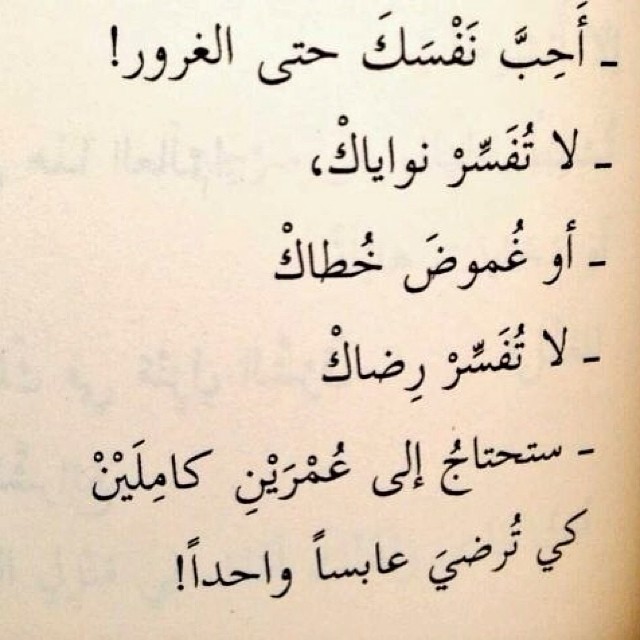 ـ أَحِبَّ نَفْسَكَ حتى الغرور!
ـ لا تُفَسِّرْ نواياكْ،
ـ أو غُموضَ خُطاكْ
ـ لا تُفَسِّرْ رِضاكْ
ـ ستحتاجُ إلى عُمْرَيْنِ كامِلَيْنْ
كي تُرضيَ عابساً واحداً!